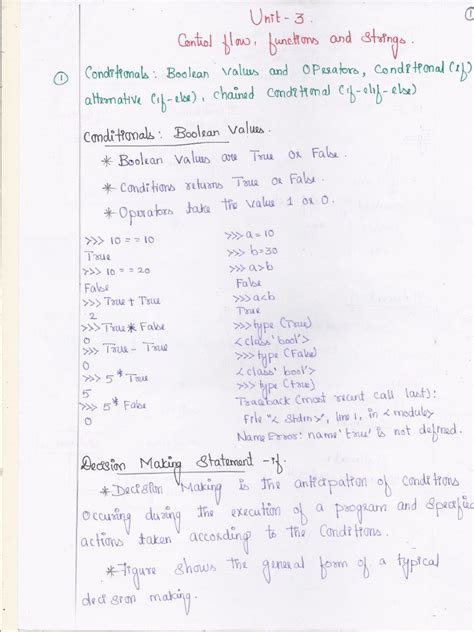 Unit - 3.
Control flow, functions and Strings.
① Conditionals: Boolean Values and Operators, Conditional (if)
alternative (if-else), chained Conditional (if-elif-else)
Conditionals: Boolean Values.
* Boolean Values are True or False.
* Conditions returns True or False.
* Operators take the Value 1 or 0.
>>> 10 == 10
True
>>> 10 == 20
False
>>> True + True
2
>>> True * False
0
>>> True - True
0
>>> 5 * True
5
>>> 5 * False
0
>>> a = 10
>>> b = 30
>>> a > b
False
>>> a < b
True
>>> type (True)
<class 'bool'>
>>> type (False)
<class 'bool'>
>>> type (true)
Traceback (most recent call last):
File "< Stdin >", line 1, in < module>
Name Error: name 'true' is not defined.
Decision Making Statement - if.
* Decision Making is the anticipation of conditions
occuring during the execution of a program and Specified
actions taken according to the Conditions.
* Figure shows the general form of a typical
decision making.